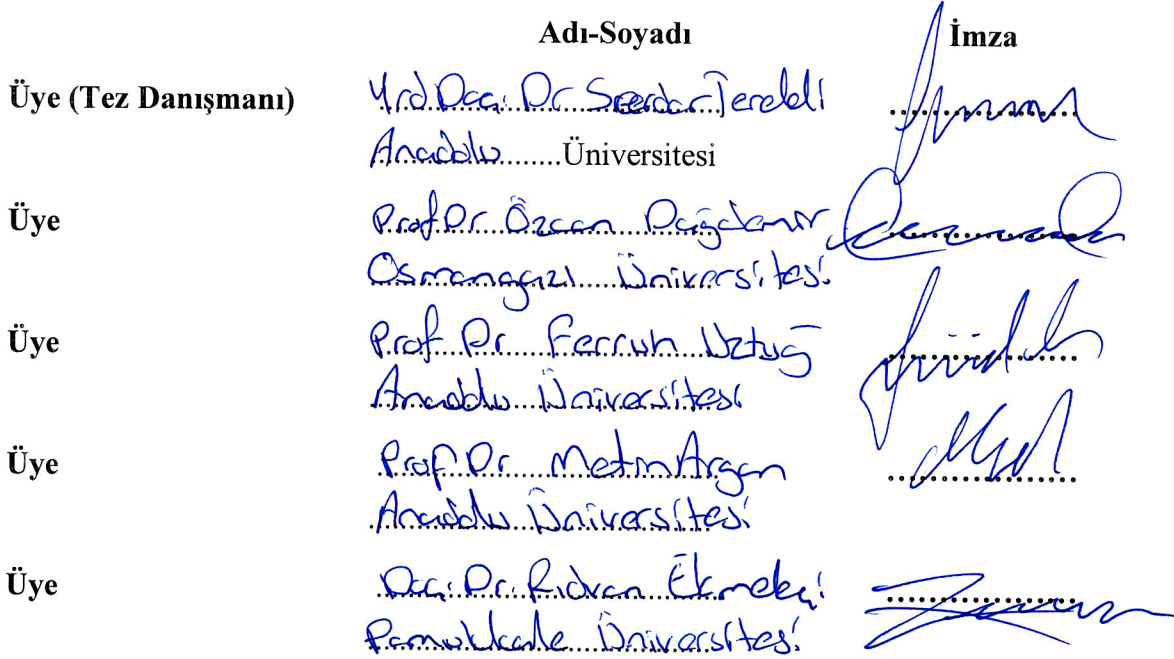 Adı-Soyadı İmza
Üye (Tez Danışmanı) Yrd Doç. Dr Serdar Terekli
Anadolu Üniversitesi
Üye Prof Dr Özcan Dağdemir
Osmangazi Üniversitesi
Üye Prof Dr Ferruh Uztuğ
Anadolu Üniversitesi
Üye Prof Dr Metin Argan
Anadolu Üniversitesi
Üye Doç. Dr. Rıdvan Ekmekçi
Pamukkale Üniversitesi